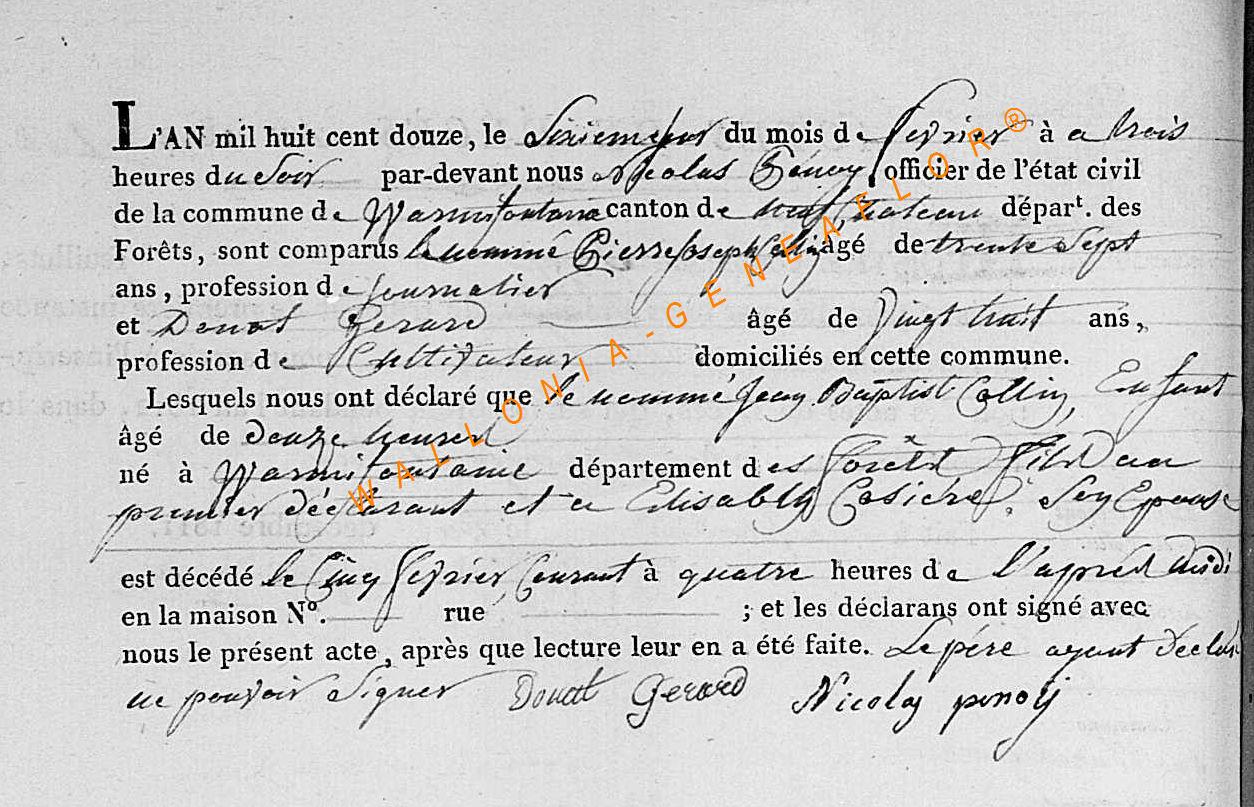 L'AN mil huit cent douze, le Sixieme jour du mois de fevrier à a trois
heures du Soir par-devant nous Nicolas Penoy officier de l'état civil
de la commune de Warmifontaine canton de neufchateau départ. des
Forêts, sont comparus le nommé Pierre Joseph Collin âgé de trente Sept
ans, profession de Journalier
et Donat Gerard âgé de Vingt huit ans,
profession de Cultivateur domiciliés en cette commune.
Lesquels nous ont déclaré que le nommé Jean Baptist Collin, Enfant
âgé de douze heures
né à Warmifontaine département des forêts fils au
premier déclarant et a Elisabeth Son Epouse
est décédé le Cinq fevrier Courant à quatre heures de l'apres midi
en la maison N°. rue ; et les déclarans ont signé avec
nous le présent acte, après que lecture leur en a été faite. Le pére ayant Declaré
ne pouvoir Signer Donatt Gerard Nicolas penoij
WALLONIA-GENEAFLOR®